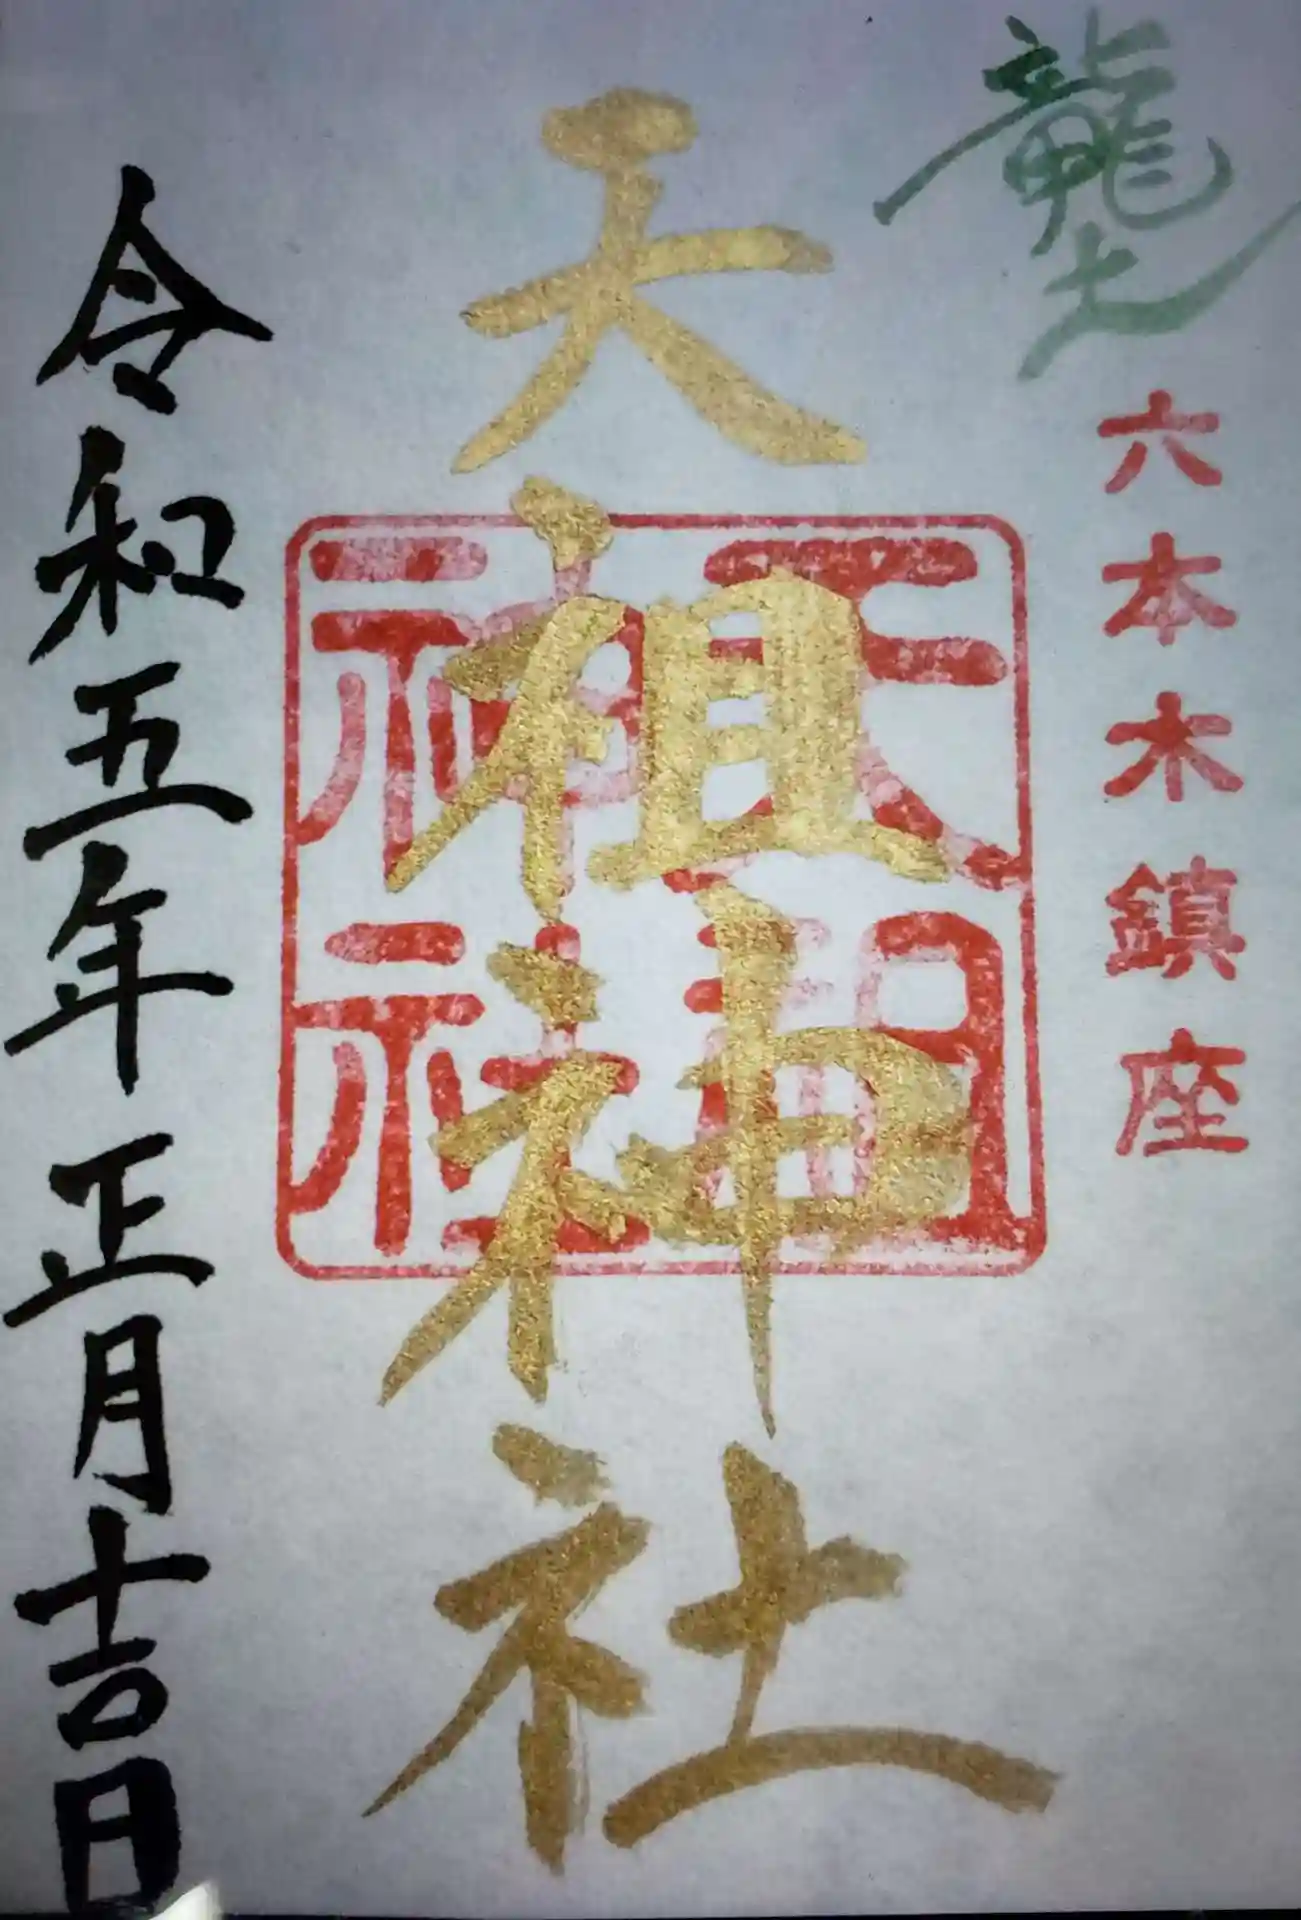 龍土
六本木鎮座
天祖神社
天祖
神社
令和五年 正月吉日